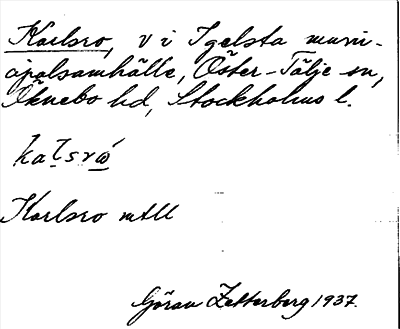 Karlsro, v i Igelsta muni-
cipalsamhälle, Öster-Tälje sn,
Öknebo hd, Stockholms l.
kaḻsrώ
Karlsro mtll
Göran Zetterberg 1937.